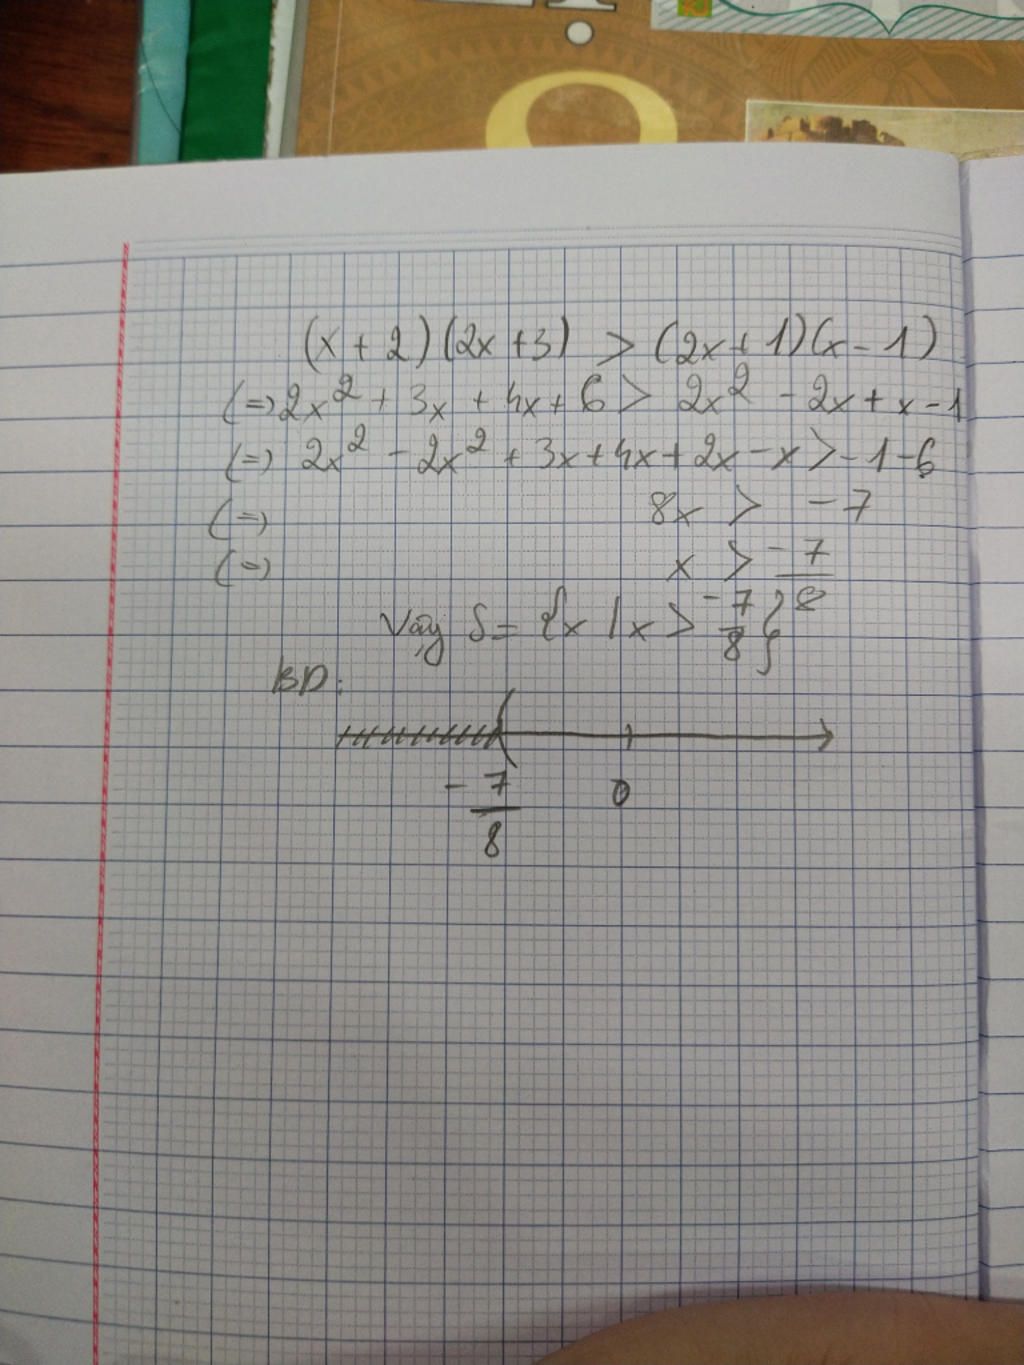 (x + 2)(2x + 3) > (2x + 1)(x - 1)
(=) 2x² + 3x + 4x + 6 > 2x² - 2x + x - 1
(=) 2x² - 2x² + 3x + 4x + 2x - x > -1 - 6
(=) 8x > -7
(=) x > -7/8
Vậy S = {x | x > -7/8}
BD:
-7/8 0